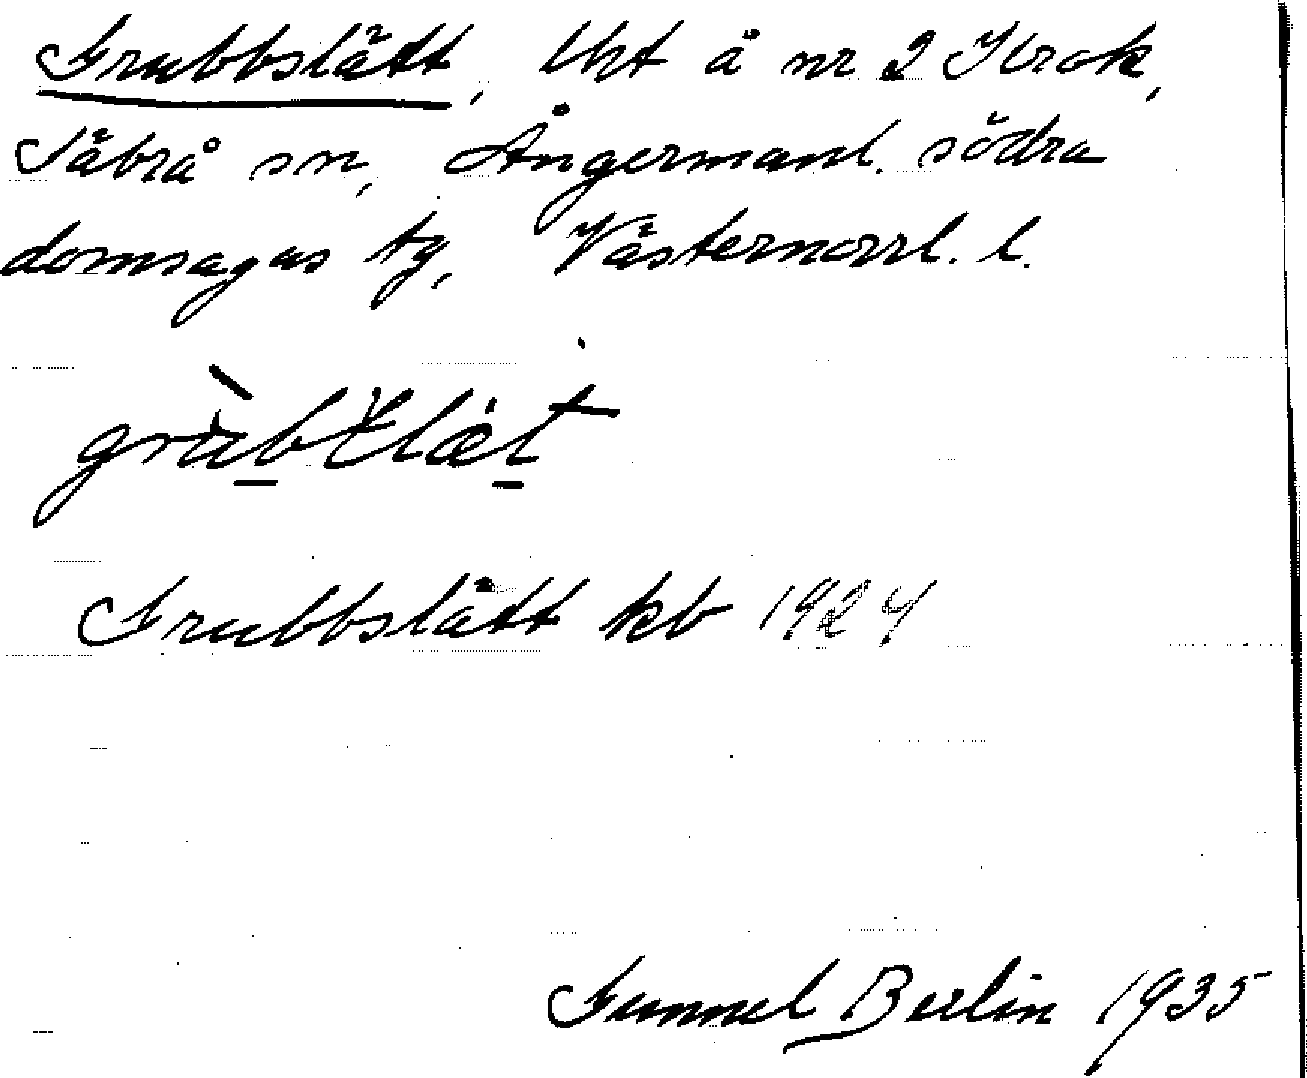 Grubbslätt, tht å nr 2 Krok,
Säbrå sn, Ångermanl. södra
domsagas tg, Västernorrl. l.
Grubbslätt kb 1924
Gunnel Berlin 1935